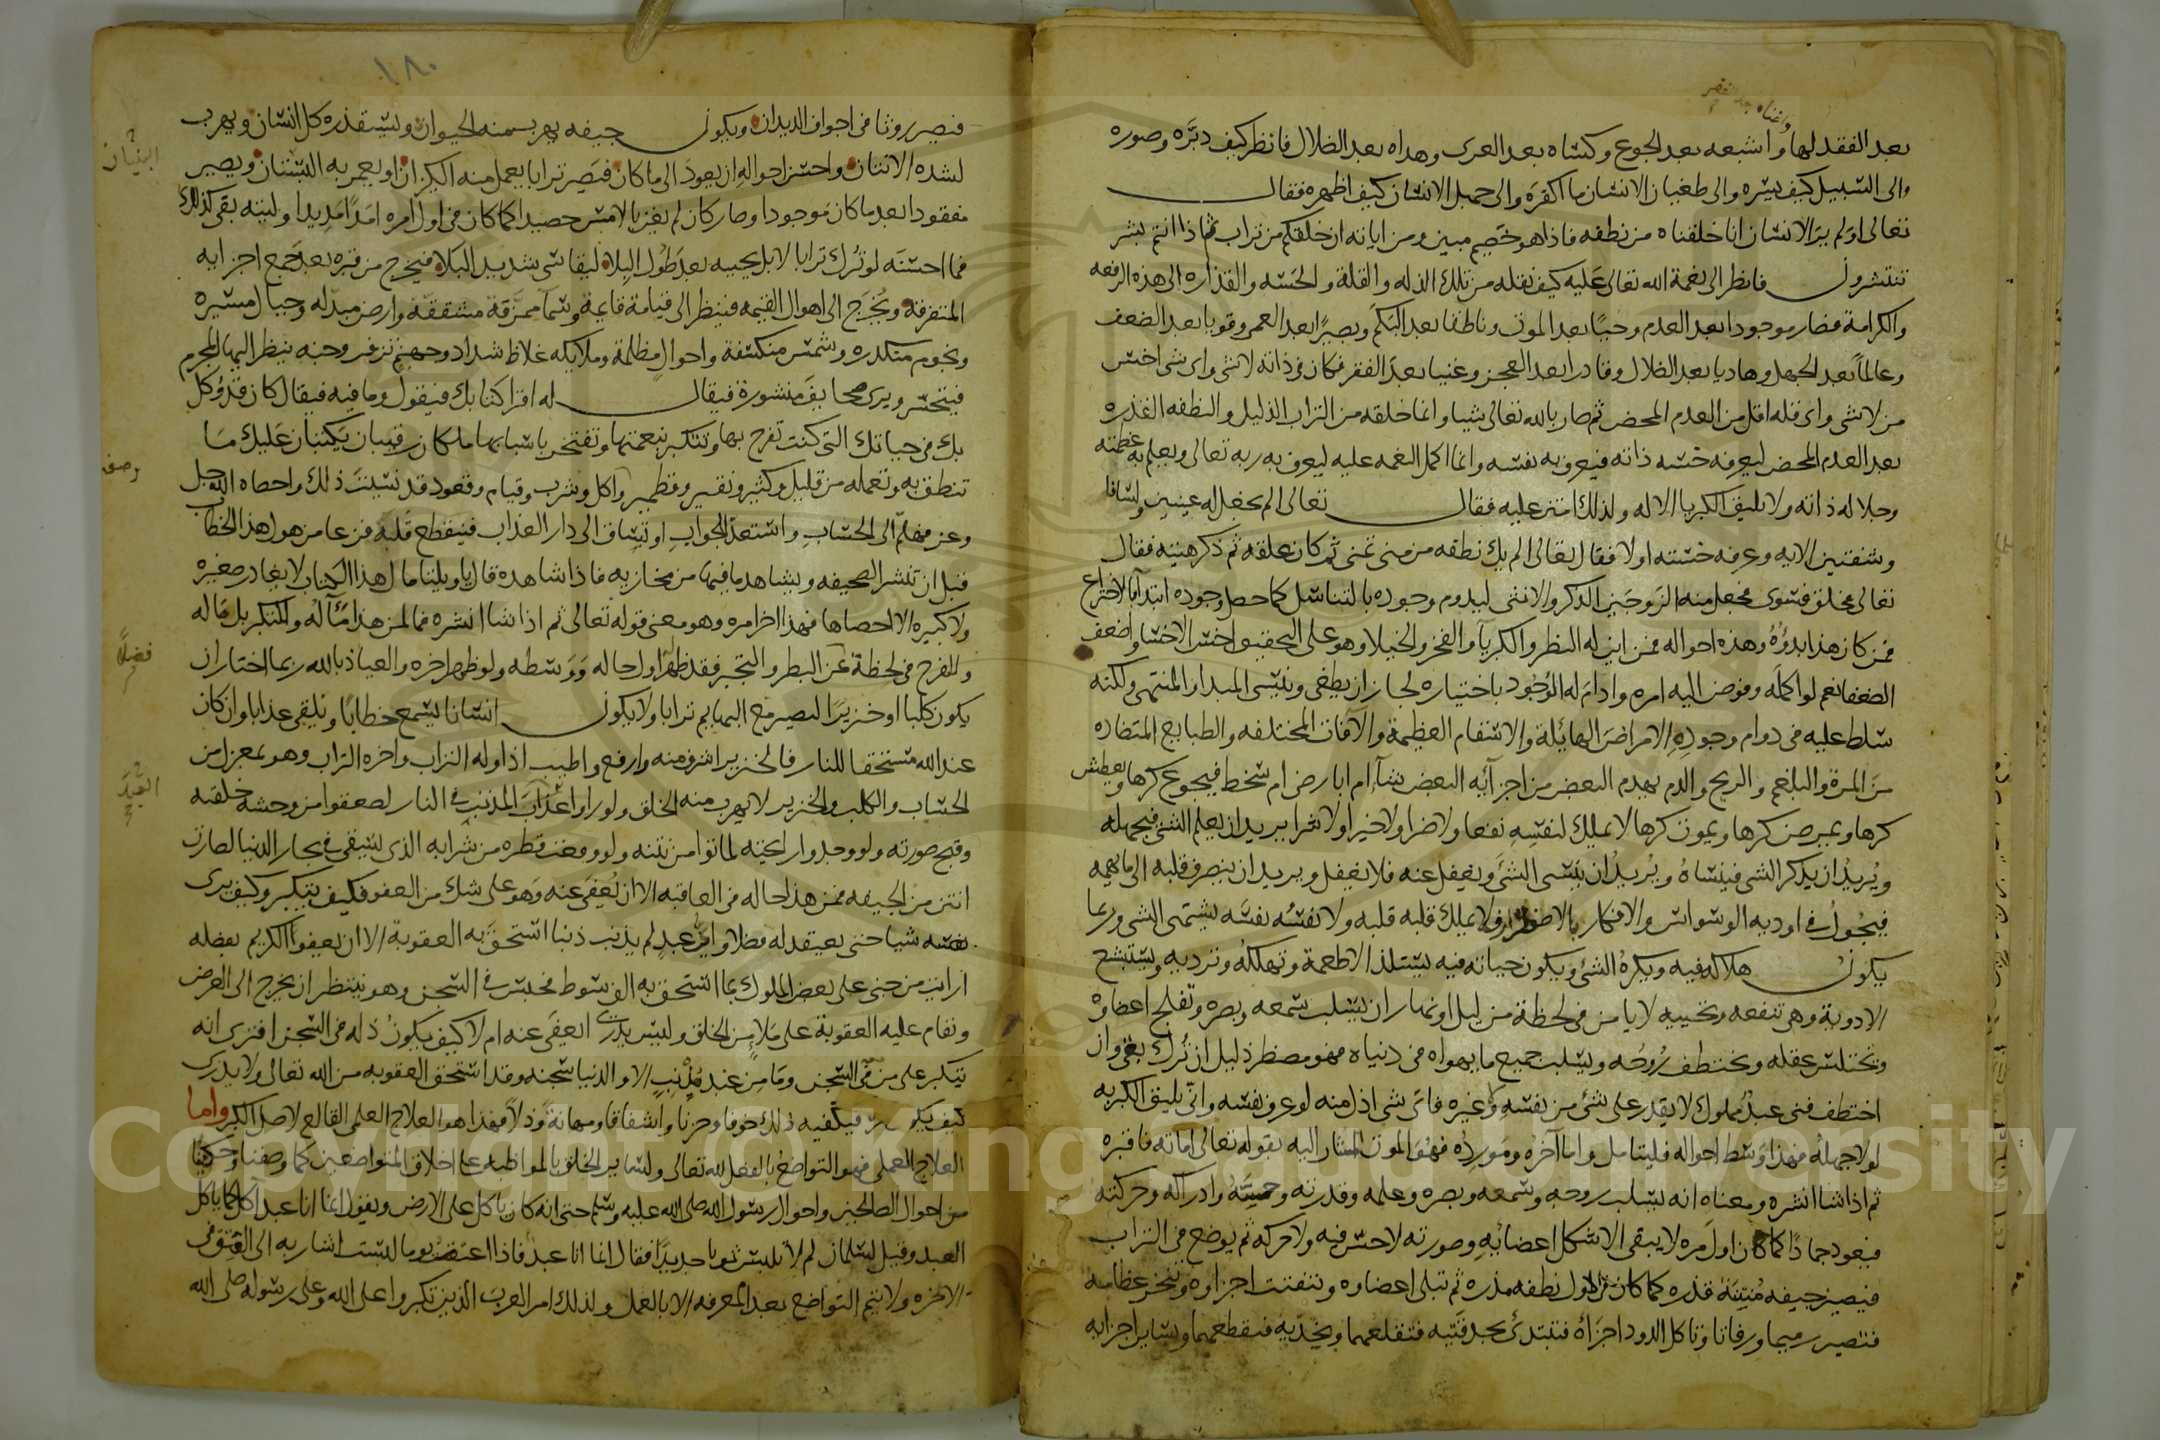 واغناه بعد الفقر
بعد الفقد لها واشبعه بعد الجوع وكساه بعد العرى وهداه بعد الضلال فانظر كيف دبره وصوره
والى السبيل كيف يسره والى طغيان الانسان ما اكفره والى جهل الانسان كيف اظهره فقال
تعالى اولم ير الانسان انا خلقناه من نطفه فاذا هو خصيم مبين ومن اياته ان خلقكم من تراب ثم اذا انتم بشر
تنتشرون فانظر الى نعمة الله تعالى عليه كيف نقله من تلك الذله والقلة والخسه والقذاره الى هذه الرفعه
والكرامة فصار موجودا بعد العدم وحيا بعد الموت وناطقا بعد البكم وبصيرا بعد العمى وقويا بعد الضعف
وعالما بعد الجهل وهاديا بعد الضلال وقادرا بعد العجز وغنيا بعد الفقر فكان في ذاته لا شى واى شى اخس
من لا شى واى قله اقل من العدم المحض ثم صار بالله تعالى شيا وانما خلقه من التراب الذليل والنطفه القذره
بعد العدم المحض ليعرفه خسه ذاته فيعرف به نفسه وانما اكمل النعمه عليه ليعرف به ربه تعالى ويعلم به عظمته
وجلاله ذاته ولا يليق الكبريا الا له ولذلك امتن عليه فقال تعالى الم نجعل له عينين ولسانا
وشفتين الايه وعرفه خسته اولا فقال تعالى الم يك نطفه من منى تمنى ثم كان علقه ثم ذكر منته فقال
تعالى فخلق فسوى فجعل منه الزوجين الذكر والانثى ليدوم وجوده بالتناسل كما حصل وجوده ابتدآ بالاختراع
فمن كان هذا بدؤه وهذه احواله فمن اين له البطر والكبريآ والفخر والخيلا وهو على التحقيق اخس الاخسا واضعف
الضعفا نعم لو اكمله وفوض اليه امره وادام له الوجود باختياره لجاز ان يطغى وينسى المبدا والمنتهى ولكنه
سلط عليه في دوام وجوده الامراض الهائلة والاسقام العظيمة والآفات المختلفه والطبايع المتضاده
من المرة والبلغم والريح والدم يهدم البعض من اجزآئه البعض شآ ام ابا رضى ام سخط فيجوع كرها ويعطش
كرها ويمرض كرها ويموت كرها لا يملك لنفسه نفعا ولا ضرا ولا خيرا ولا شرا يريد ان يعلم الشئ فيجهله
ويريد ان يذكر الشى فينساه ويريد ان ينسى الشئ ويغفل عنه فلا يغفل ويريد ان يصرف قلبه الى ما يهمه
فيجول في اوديه الوسواس والافكار بالاضطرار فلا يملك قلبه قلبه ولا نفسه نفسه يشتهى الشى وربما
يكون هلاكه فيه ويكره الشئ ويكون حياته فيه يستلذ الاطعمة وتهلكه وترديه ويستبشع
الادوية وهى تنفعه وتحييه لا يامن في لحظة من ليل او نهار ان يسلب سمعه وبصره وتفلج اعضاوه
ويختلس عقله ويختطف روحه ويسلب جميع ما يهواه في دنياه فهو مضطر ذليل ان ترك بقى وان
اختطف فنى عبد مملوك لا يقدر على شئ من نفسه ولا غيره فاى شى اذل منه لو عرف نفسه وانى يليق الكبر به
لولا جهله فهذا وسط احواله فليتامل واما آخره ومورده فهو الموت المشار اليه بقوله تعالى اماته فاقبره
ثم اذا شا انشره ومعناه انه يسلب روحه وسمعه وبصره وعلمه وقدرته وحسه وادراكه وحركته
فيعود جمادا كما كان اول مره لا يبقى الا شكل اعضائه وصورته لا حس فيه ولا حركه ثم يوضع في التراب
فيصير جيفه منتنة قذره كما كان في الاول نطفه مذره ثم تبلى اعضاوه وتتفتت اجزاوه وتنخر عظامه
فتصير رميما ورفاتا وتاكل الدود اجزاه فتبتدئ بحدقتيه فتقلعهما وبخديه فتقطعهما وبساير اجزايه
١٨٠
فتصير روثا فى اجواف الديدان ويكون جيفه يهرب منه الحيوان ويستقذره كل انسان ويهرب
لشده الانتان واحسن احواله ان يعود الى ما كان فيصير ترابا يعمل منه الكيزان او يعمر به البستان ويصير
البنيان
مفقودا بعد ما كان موجودا وصار كان لم يغن بالامس حصيدا كما كان في اول امره امدا مديدا وليته بقى كذلك
فما احسنه لو ترك ترابا لا بل يحييه بعد طول البلا ليقاسى شديد البلا فيخرج من قبره بعد جمع اجزايه
المتفرقة ويخرج الى اهوال القيمه فينظر الى قيامة قايمة وسمآ ممزقة مشققه وارض مبدله وجبال مسيره
ونجوم منكدره وشمس منكسفة واحوال مظلمة وملايكه غلاظ شداد وجهنم تزفر وجنه ينظر اليها المجرم
فيتحسر ويرى صحايف منشورة فيقال له اقرا كتابك فيقول وما فيه فيقال كان قد وكل
بك في حياتك التى كنت تفرح بها وتتكبر بنعمتها وتفتخر باسبابها ملكان رقيبان يكتبان عليك ما
تنطق به وتعمله من قليل وكثير ونقير وقطمير واكل وشرب وقيام وقعود قد نسيت ذلك واحصاه الله جل
وعز فهلم الى الحساب واستعد للجواب او تساق الى دار العذاب فينقطع قلبه فزعا من هول هذا الخطاب
قبل ان تنشر الصحيفه ويشاهد ما فيها من مخازيه فاذا شاهده قال يا ويلتنا مال هذا الكتاب لا يغادر صغيره
ولا كبيره الا احصاها فهذا اخر امره وهو معنى قوله تعالى ثم اذا شا انشره فما لمن هذا مآله والتكبر بل ما له
وللفرح في لحظة عن البطر والتجبر فقد ظهر اول حاله ووسطه ولو ظهر اخره والعياذ بالله ربما اختار ان
فضلاً
يكون كلبا او خنزيرا ليصير مع البهايم ترابا ولا يكون انسانا يسمع خطابا ويلقى عذابا وان كان
عند الله مستحقا للنار فالخنزير اشرف منه وارفع واطيب اذ اوله التراب واخره التراب وهو بمعزل من
الحساب والكلب والخنزير لا يهرب منه الخلق ولو راوا عذاب المذنب في النار لصعقوا من وحشه خلقته
العبد
وقبح صورته ولو وجدوا رائحته لماتوا من نتنه ولو وقعت قطره من شرابه الذى يستقى في بحار الدنيا لصارت
انتن من الجيفه فمن هذا حاله في العاقبه الا ان يعفى عنه وهو على شك من العفو فكيف يتكبر وكيف يرى
نفسه شيا حتى يعتقد له فضلا واى عبد لم يذنب ذنبا استحق به العقوبة الا ان يعفو الكريم بفضله
ارايت من جنى على بعض الملوك بما استحق به الف سوط فحبس في السجن وهو ينتظر ان يخرج الى العرض
وتقام عليه العقوبة على ملا من الخلق وليس يدرى ايعفى عنه ام لا كيف يكون ذله في السجن افترى انه
يتكبر على من في السجن وما من عبد مذنب الا والدنيا سجنه وقد استحق العقوبه من الله تعالى ولا يدرى
كيف يكون فيكفيه ذلك خوفا وحزنا واشفاقا ومهانة وذلا فهذا هو العلاج العلمى القالع لاصل الكبر واما
العلاج العملى فهو التواضع بالفعل لله تعالى ولساير الخلق بالمواظبه على اخلاق المتواضعين كما وصفنا وحكينا
من احوال الصالحين واحوال رسول الله صلى الله عليه وسلم حتى انه كان ياكل على الارض ويقول انما انا عبد اكل كما ياكل
العبد وقيل لسلمان لم لا تلبس ثوبا جديدا فقال انما انا عبد فاذا اعتقت يوما لبست اشار به الى العتق في
الاخره ولا يتم التواضع بعد المعرفه الا بالعمل ولذلك امر العرب الذين تكبروا على الله وعلى رسوله صلى الله
Copyright © King Saud University